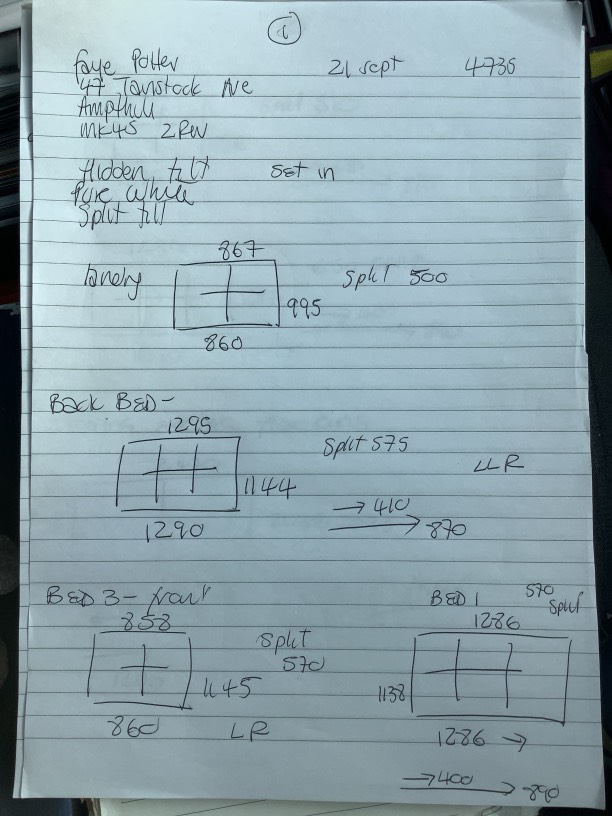 1
Faye Potter 21 sept 4736
47 Tavistock Ave
Ampthill
MK45 2RW
Hidden tilt set in
Pure White
Split tilt
867
Landry Split 500
995
860
Back BED -
1295
Split 575
LLR
1144
→ 410
→ 870
1290
BED 3 - front
858
Split
570
1145
860 LR
BED 1 570
Split
1286
1138
1286 →
→ 400
→ 890